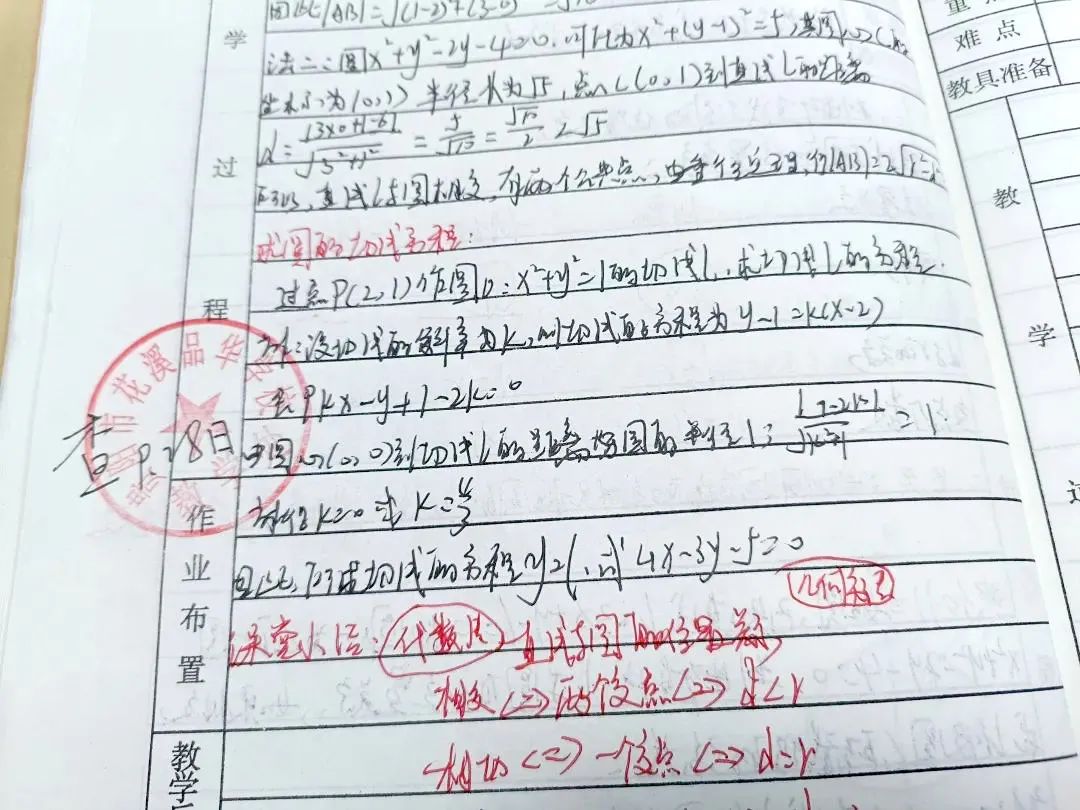 因此|AB|=√(1-2)²+(3-0)²
法二:圆x²+y²-2y-4=0.可化为x²+(y-1)²=5,其圆心C的
坐标为(0,1)半径长为√5,点C(0,1)到直线l的距离
d=|3×0+1-6|/√3²+1²=5/√10=√10/2<√5
所以,直线l与圆相交,有两个公共点,由垂径定理,得|AB|=2√r²-d²
求圆的切线方程:
过点P(2,1)作圆O:x²+y²=1的切线l,求切线l的方程.
解:设切线的斜率为k,则切线的方程为y-1=k(x-2)
即kx-y+1-2k=0
由圆心(0,0)到切线l的距离等于圆的半径1:|1-2k|/√k²+1=1.
解得k=0或k=4/3
因此,所求切线的方程y=1,或4x-3y-5=0
几何
课堂小结:代数法
直线与圆的位置关系
相交<=>两个交点<=>d<r
相切<=>一个交点<=>d=r
学
过
程
作
业
布
置
教
学
查
8日
花溪品华
难点
教具准备
教
学